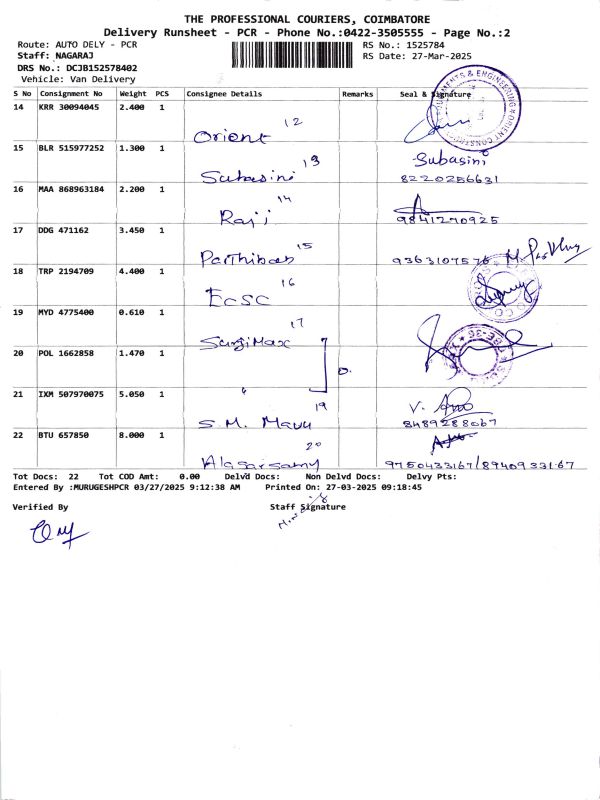 THE PROFESSIONAL COURIERS, COIMBATORE
Delivery Runsheet - PCR - Phone No.:0422-3505555 - Page No.:2
Route: AUTO DELY - PCR RS No.: 1525784
Staff: NAGARAJ RS Date: 27-Mar-2025
DRS No.: DCJB152578402
Vehicle: Van Delivery
S No Consignment No Weight PCS Consignee Details Remarks Seal & Signature
14 KRR 30094045 2.400 1
Orient 12
15 BLR 515977252 1.300 1
Subasini 13 Subasini
8220256631
16 MAA 868963184 2.200 1
Raji 14
9841270925
17 DDG 471162 3.450 1
Parthiban 15 9363107576
18 TRP 2194709 4.400 1
ECSC 16
19 MYD 4775400 0.610 1
SurgiMax 17
20 POL 1662858 1.470 1
21 IXM 507970075 5.050 1
〃
S. M. 19
8489288067
22 BTU 657850 8.000 1
20
9750433167/8940933167
Tot Docs: 22 Tot COD Amt: 0.00 Delvd Docs: Non Delvd Docs: Delvy Pts:
Entered By :MURUGESHPCR 03/27/2025 9:12:38 AM Printed On: 27-03-2025 09:18:45
Verified By Staff Signature